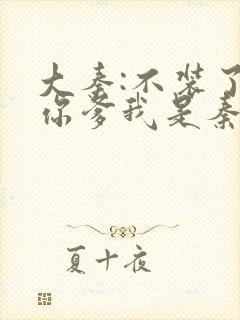 大秦:不装了
你爹我是秦
夏十夜